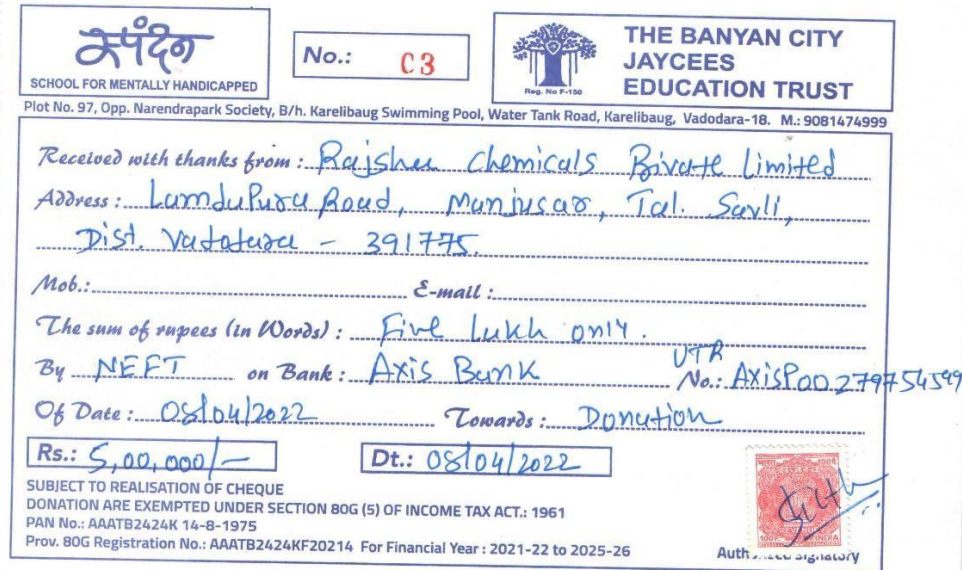 स्पंदन
SCHOOL FOR MENTALLY HANDICAPPED
No.: 03
Reg. No F-150
THE BANYAN CITY
JAYCEES
EDUCATION TRUST
Plot No. 97, Opp. Narendrapark Society, B/h. Karelibaug Swimming Pool, Water Tank Road, Karelibaug, Vadodara-18. M.: 9081474999
Received with thanks from : Rajshree Chemicals Private Limited
Address : LamduPura Road, Manjusar, Tal. Savli,
Dist. Vadodara - 391775.
Mob.: E-mail :
The sum of rupees (in Words) : Five Lakh only.
By NEFT on Bank : Axis Bank UTR No.: AxisP00279754599
Of Date : 08/04/2022 Towards : Donation
Rs.: 5,00,000/- Dt.: 08/04/2022
SUBJECT TO REALISATION OF CHEQUE
DONATION ARE EXEMPTED UNDER SECTION 80G (5) OF INCOME TAX ACT.: 1961
PAN No.: AAATB2424K 14-8-1975
Prov. 80G Registration No.: AAATB2424KF20214 For Financial Year : 2021-22 to 2025-26
REVENUE
INDIA
Authorised Signatory